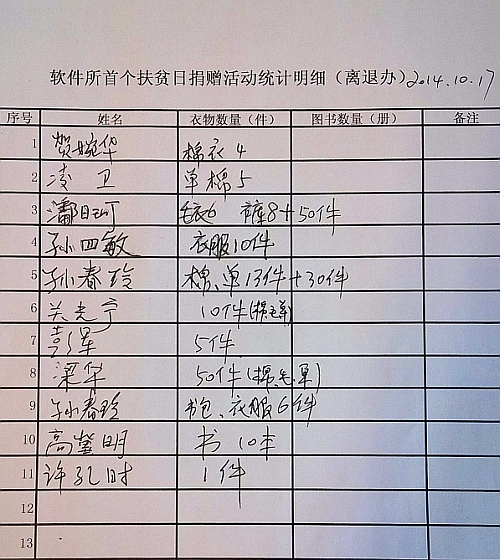 软件所首个扶贫日捐赠活动统计明细（离退办）2014.10.17
序号 姓名 衣物数量（件） 图书数量（册） 备注
1 贺婉华 棉衣 4
2 凌 卫 单棉 5
3 潘日珂 毛衣6 裤8+50件
4 孙四敏 衣服10件
5 孙春玲 棉、单13件+30件
6 关光宁 10件(棉毛单)
7 彭军 5件
8 梁华 50件(棉、毛、单)
9 孙春珍 书包、衣服6件
10 高莹明 书 10本
11 许孔时 1件
12
13